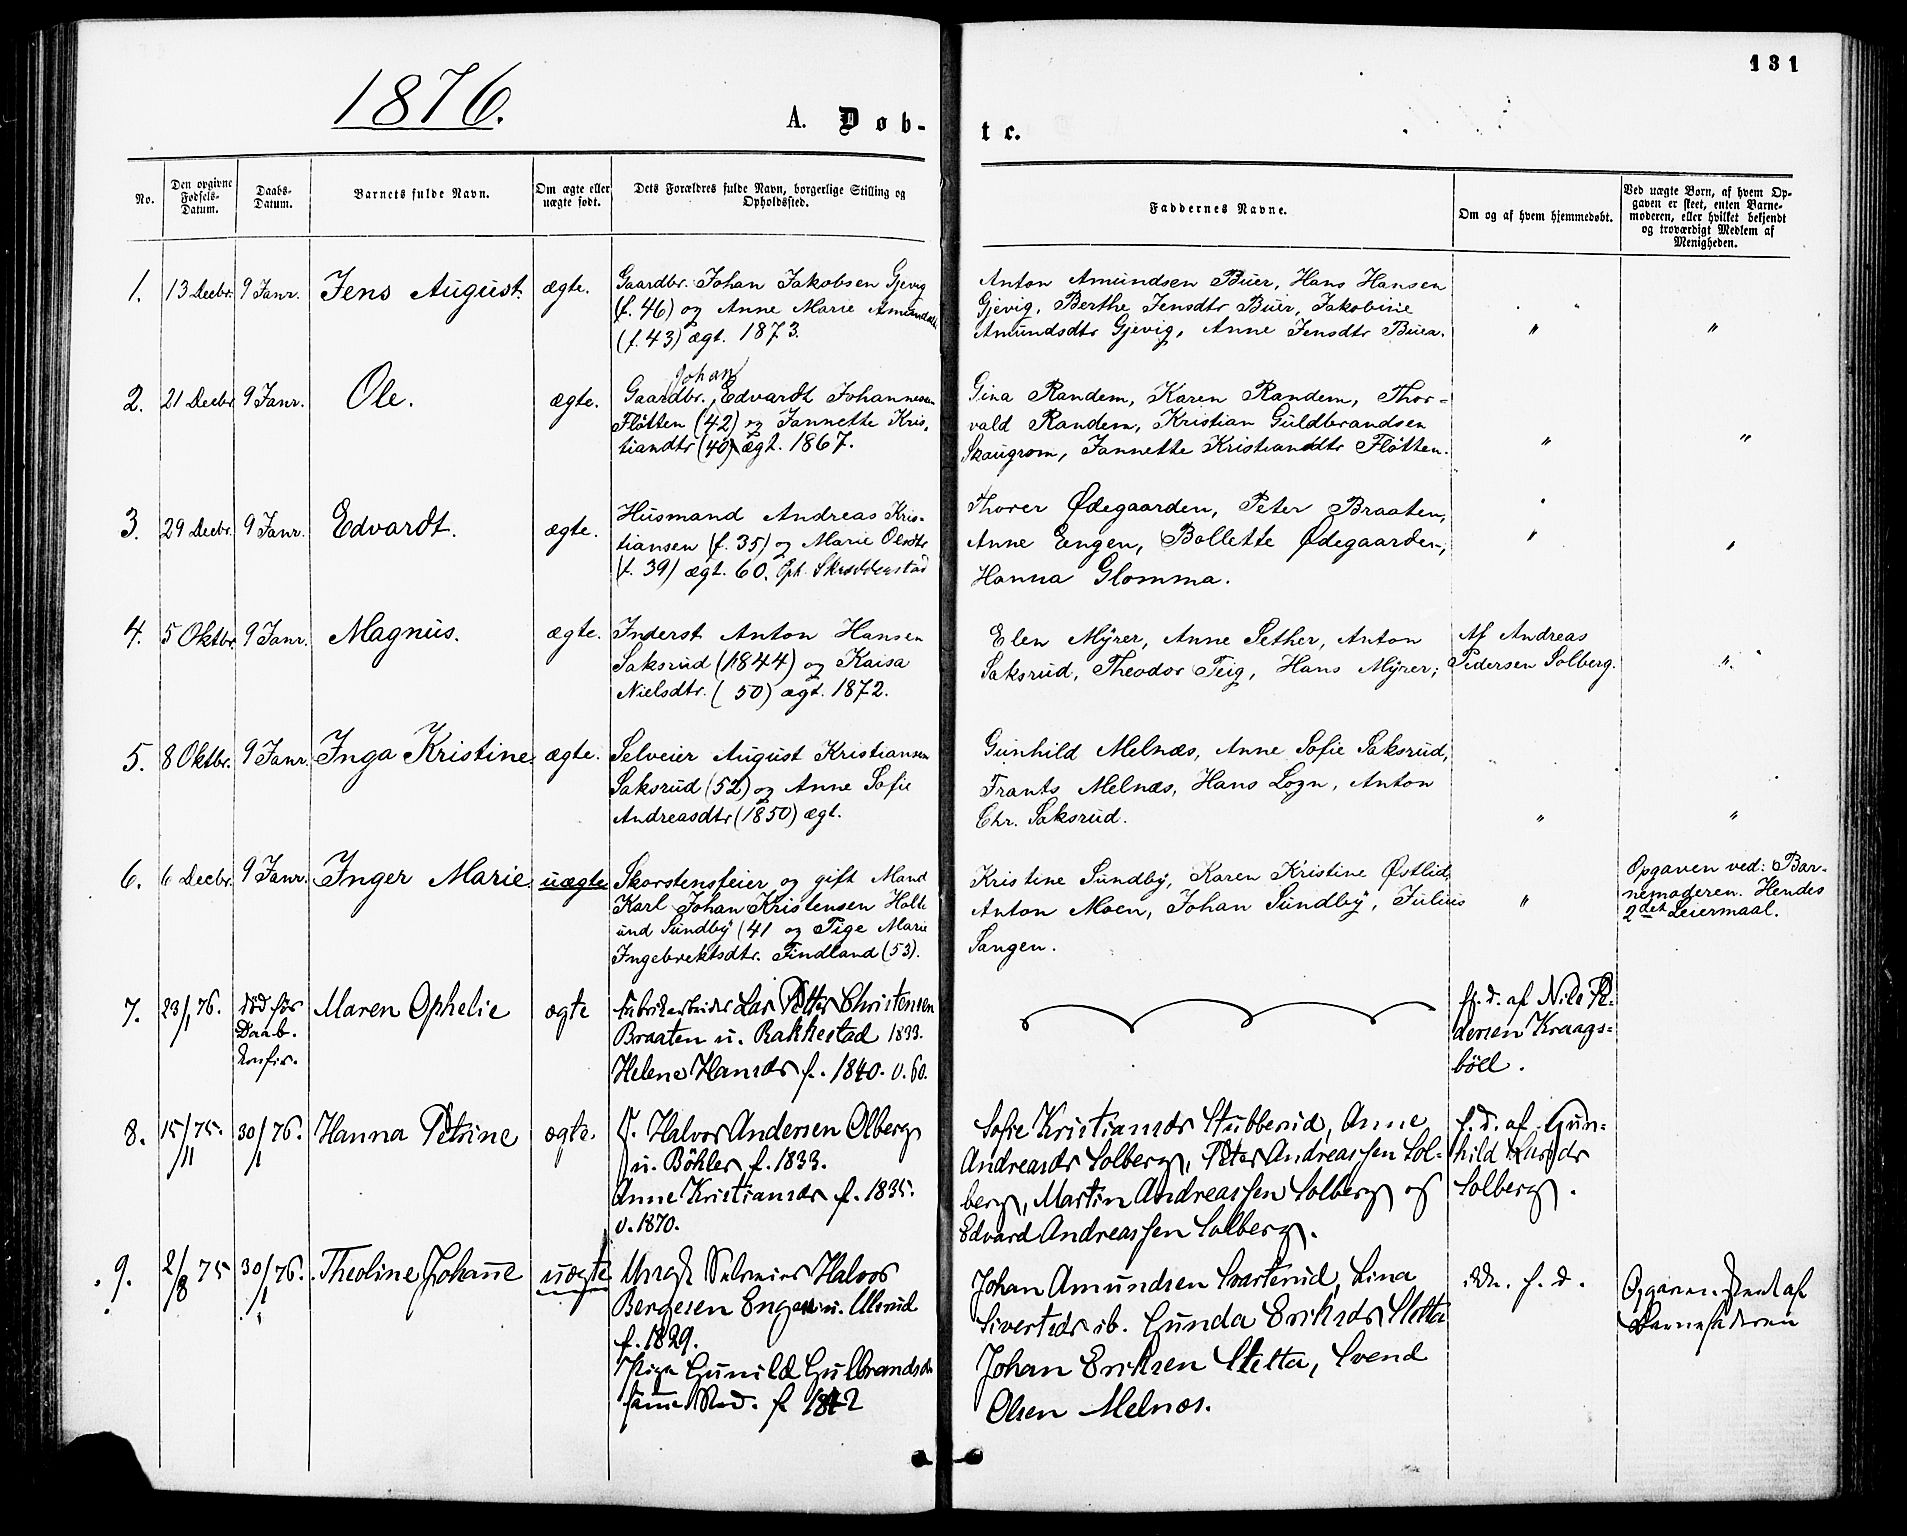 131
1876.
A. Døb-
te.
No.
Den opgivne Fødsels-Datum.
Daabs-Datum.
Barnets fulde Navn.
Om ægte eller uægte født.
Dets Forældres fulde Navn, borgerlige Stilling og Opholdssted.
Faddernes Navne.
Om og af hvem hjemmedøbt.
Ved uægte Børn, af hvem Opgaven er skeet, enten Barnemoderen, eller hvilket bekjendt og troværdigt Medlem af Menigheden.
1. 13 Decbr. 9 Janr. Jens August. ægte.
Gaardbr. Johan Jakobsen Gjevig
(f. 46) og Anne Marie Amundsdtr
(f. 43) ægt. 1873.
Anton Amundsen Buer, Hans Hansen
Gjevig, Berthe Jensdtr Buer, Jakobine
Amundsdtr Gjevig, Anne Jensdtr Buer. " "
2. 21 Decbr. 9 Janr. Ole. ægte.
Johan
Gaardbr. Edvardt Johannesen
Fløtten (42) og Jannette Kris-
tiandtr (40) ægt. 1867.
Gina Randem, Karen Randem, Thor-
vald Randem, Kristian Guldbrandsen
Skaugrom, Jannette Kristiandtr Fløtten. " "
3. 29 Decbr. 9 Janr. Edvardt. ægte.
Husmand Andreas Kris-
tiansen (f. 35) og Marie Olsdtr
(f. 39) ægt. 60. Oph.
Thorer Ødegaarden, Peter Braaten,
Anne Engen, Bollette Ødegaarden, " "
Hanna Glomma.
4. 5 Oktbr. 9 Janr. Magnus. ægte.
Inderst Anton Hansen
Saksrud (1844) og Kaisa
Nielsdtr. (50) ægt. 1872.
Elen Myrer, Anne Sether, Anton
Saksrud, Theodor Teig, Hans Myrer;
Af Andreas
Pedersen Solberg. "
5. 8 Oktbr. 9 Janr. Inga Kristine ægte.
Selveier August Kristiansen
Saksrud (52) og Anne Sofie
Andreasdtr (1850) ægt.
Gunhild Melnæs, Anne Sofie Saksrud,
Frants Melnæs, Hans Logn, Anton
Chr. Saksrud. " "
6. 6 Decbr. 9 Janr. Inger Marie. uægte
Skorstensfeier og gift Mand
Karl Johan Kristensen Holte
und Sundby (41 og Pige Marie
Ingebrektsdtr. Findland (53).
Kristine Sundby, Karen Kristine Østlid,
Anton Moen, Johan Sundby, Julius "
Sangen.
Opgaven ved: Bar-
nemoderen. Hendes
2det Leiermaal.
7. 23/1 76. død før
Daab.
Konfir.
Maren Ophelie ægte
Fabrikarbeider Lars Petter Christensen
Braaten u. Rakkestad 1833.
Helene Hansdr f. 1840. v. 60.
H. d. af Nils Pe-
dersen Kraags-
böll.
8. 15/11 75. 30/1 76. Hanna Petrine ægte.
J. Halvor Andersen Olberg
u. Böhler f. 1833.
Anne Kristiansdr f. 1835.
v. 1870.
Sofie Kristiansdr Stubberud, Anne
Andreasdr Solberg, Peter Andreassen Sol-
berg, Martin Andreassen Solberg og
Edvard Andreassen Solberg.
f. d. af Gun-
hild Larsdr
Solberg.
9. 2/8 75 30/1 76. Theoline Johanne uægte
Ungk. Selveier Halvor
Bergesen Engen u. Ulsrud
f. 1829.
Pige Gunild Gulbrandsdr
samme Sted. f 1842
Johan Amundsen Svarterud, Lina
Sivertsdr ib. Gunda Eriksdr Sletta
Johan Eriksen Sletta, Svend
Olsen Melnæs.
f. d.
Opgaven skeet af
Barnefaderen